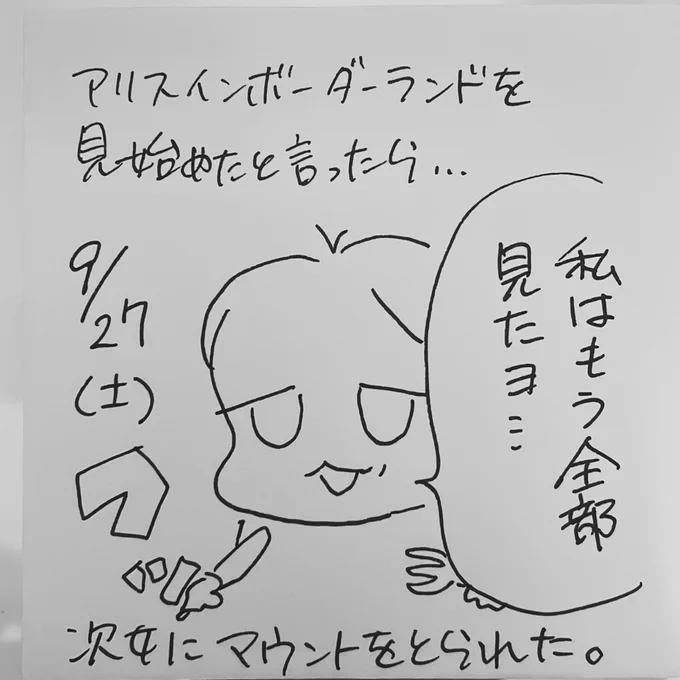 アリスインボーダーランドを
見始めたと言ったら…
9/27
(土)
私はもう全部
見たヨ…
次女にマウントをとられた。